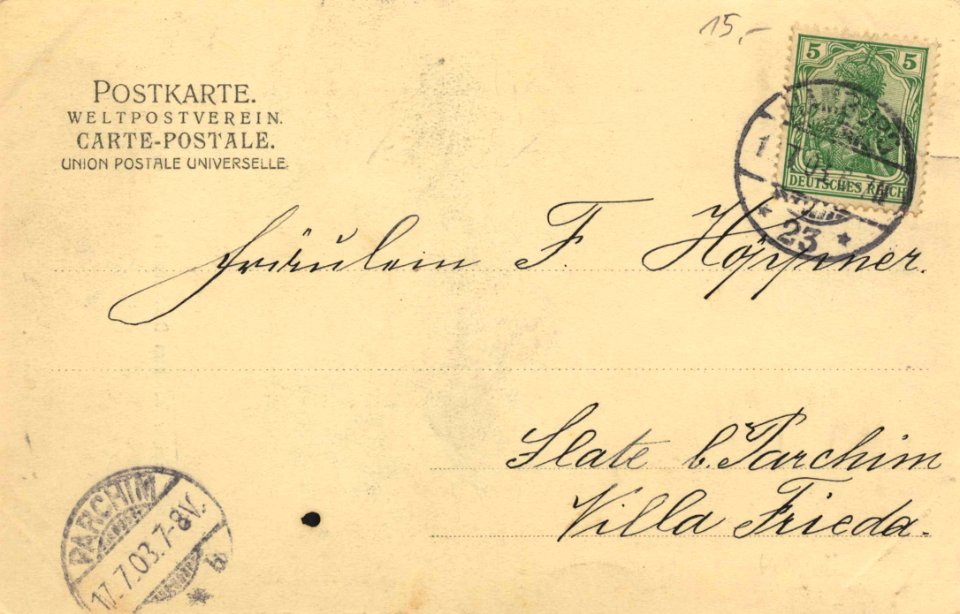 15,-
POSTKARTE.
WELTPOSTVEREIN.
CARTE-POSTALE.
UNION POSTALE UNIVERSELLE.
5 5
DEUTSCHES REICH
1 7.03
* 23 *
Fräulein F. Höppner.
Slate b. Parchim
Villa Frieda.
PARCHIM
17.7.03.7-8V.
* b